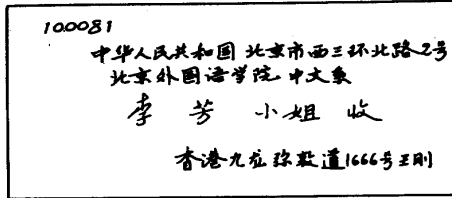 100081
中华人民共和国 北京市西三环北路2号
北京外国语学院 中文系
李 芳 小姐 收
香港九龙弥敦道1666号王刚